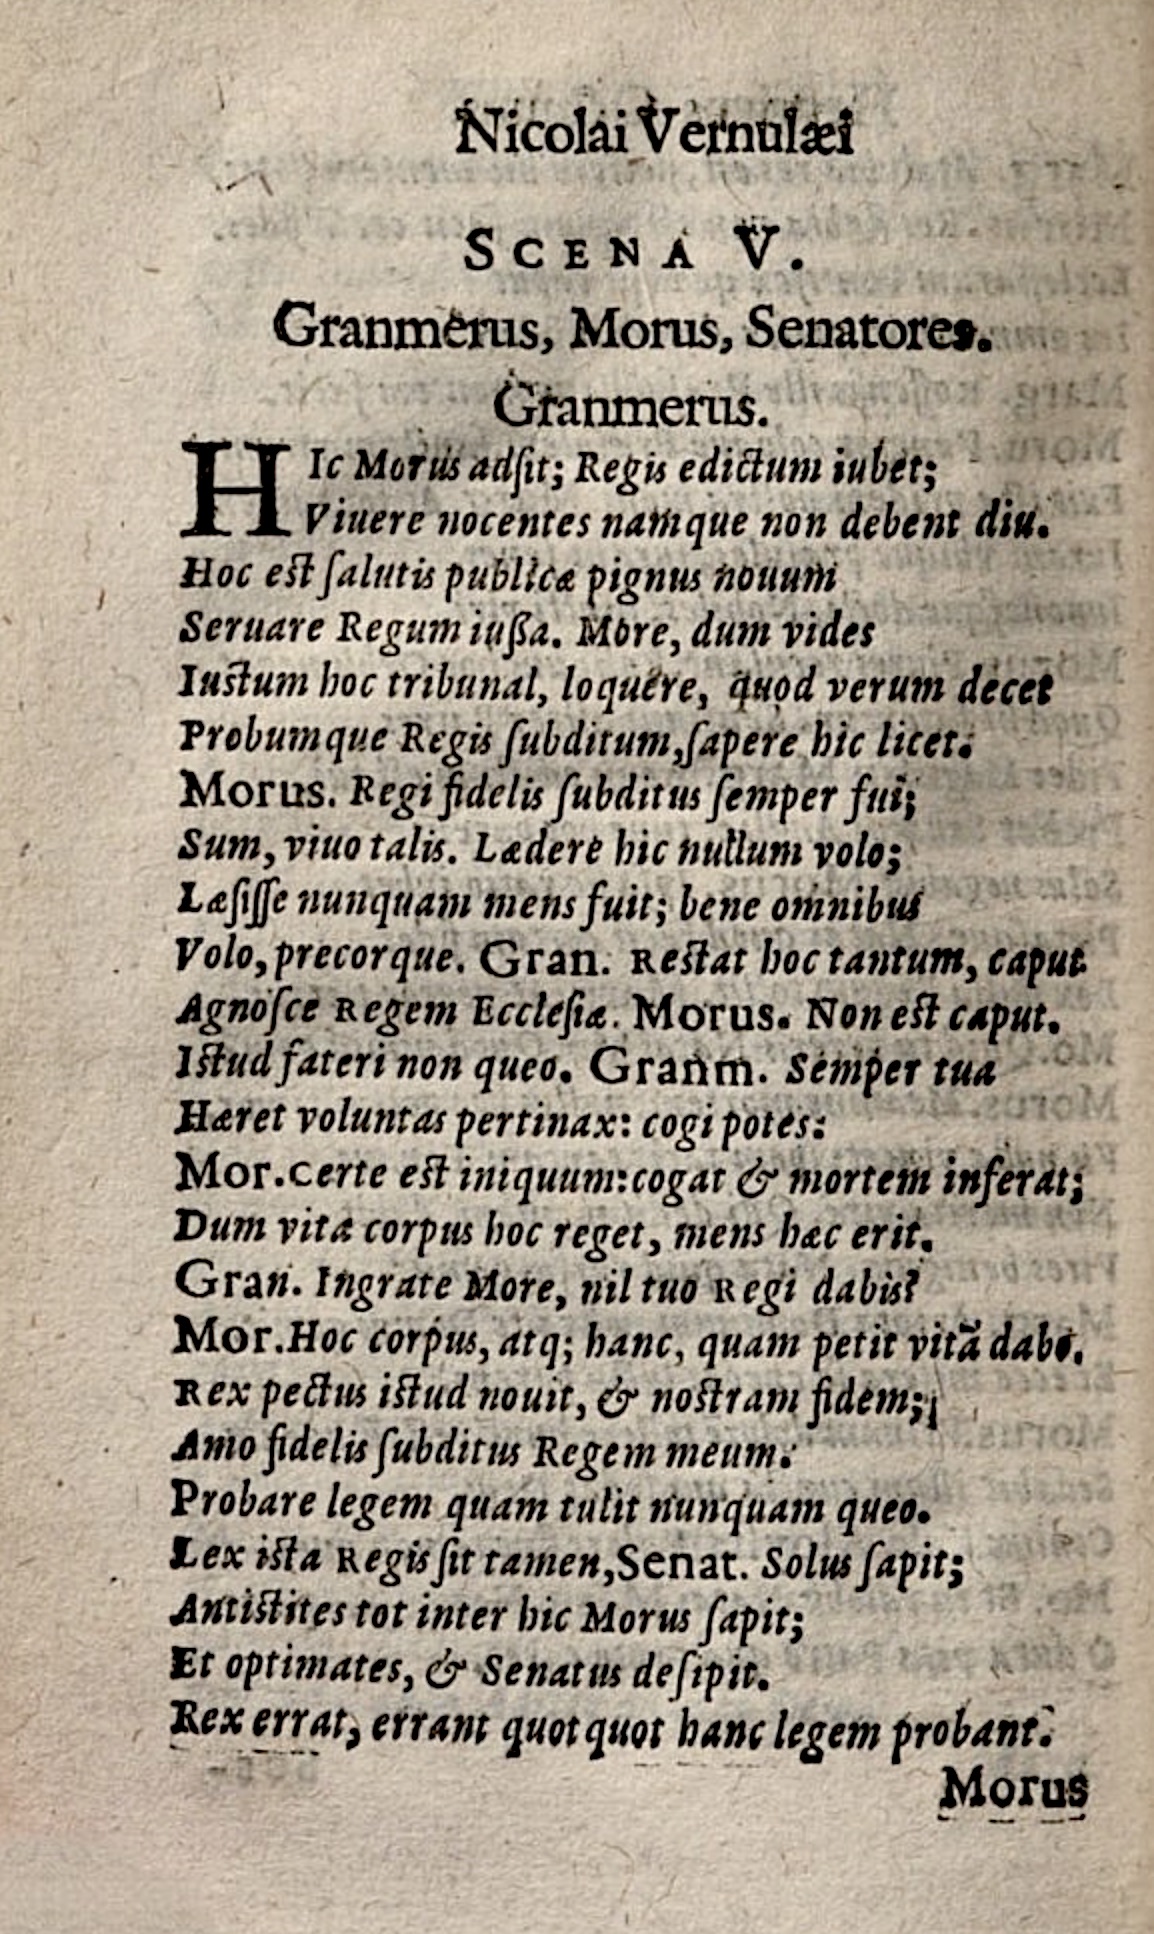 Nicolai Vernulæi
SCENA V.
Granmerus, Morus, Senatores.
Granmerus.
HIc Morus adſit; Regis edictum iubet;
Viuere nocentes namque non debent diu.
Hoc est ſalutis publicæ pignus nouum
Seruare Regum iußa. More, dum vides
Iustum hoc tribunal, loquere, quod verum decet
Probumque Regis ſubditum, ſapere hic licet.
Morus. Regi fidelis ſubditus ſemper fui;
Sum, viuo talis. Lædere hic nullum volo;
Læſiſſe nunquam mens fuit; bene omnibus
Volo, precorque. Gran. Restat hoc tantum, caput
Agnoſce Regem Eccleſiæ. Morus. Non est caput.
Istud fateri non queo. Granm. Semper tua
Hæret voluntas pertinax: cogi potes:
Mor. Certe est iniquum: cogat & mortem inferat;
Dum vita corpus hoc reget, mens hæc erit.
Gran. Ingrate More, nil tuo Regi dabis?
Mor. Hoc corpus, atq; hanc, quam petit vitã dabo.
Rex pectus istud nouit, & nostram fidem;
Amo fidelis ſubditus Regem meum.
Probare legem quam tulit nunquam queo.
Lex ista Regis ſit tamen, Senat. Solus ſapit;
Antistites tot inter hic Morus ſapit;
Et optimates, & Senatus deſipit.
Rex errat, errant quotquot hanc legem probant.
Morus